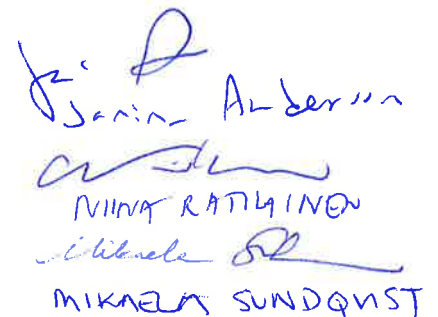 Janina Andersson
NIINA RATILAINEN
Mikaela
MIKAELA SUNDQVIST